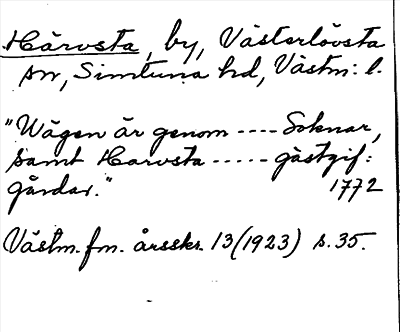 Härvsta, by, Västerlövsta
sn, Simtuna hd, Västm: l.
"Wägen är genom ---- Soknar,
samt Harvsta ----- gästgif:
gårdar."
1772
Västm. fm. årsskr. 13 (1923) s. 35.